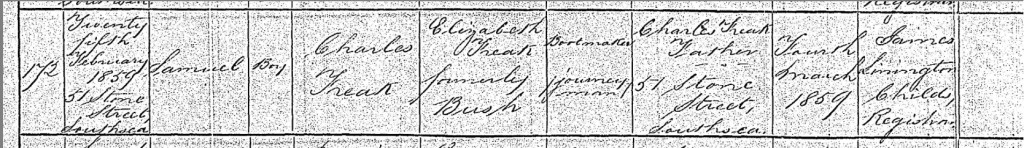 172
Twenty
fifth
February
1859
51 Stone
Street,
Southsea
Samuel
Boy
Charles
Freak
Elizabeth
Freak
formerly
Bush
Bootmaker
journey
man
Charles Freak
Father
51 Stone
Street,
Southsea.
Fourth
March
1859
James
Linington
Childs,
Registrar.